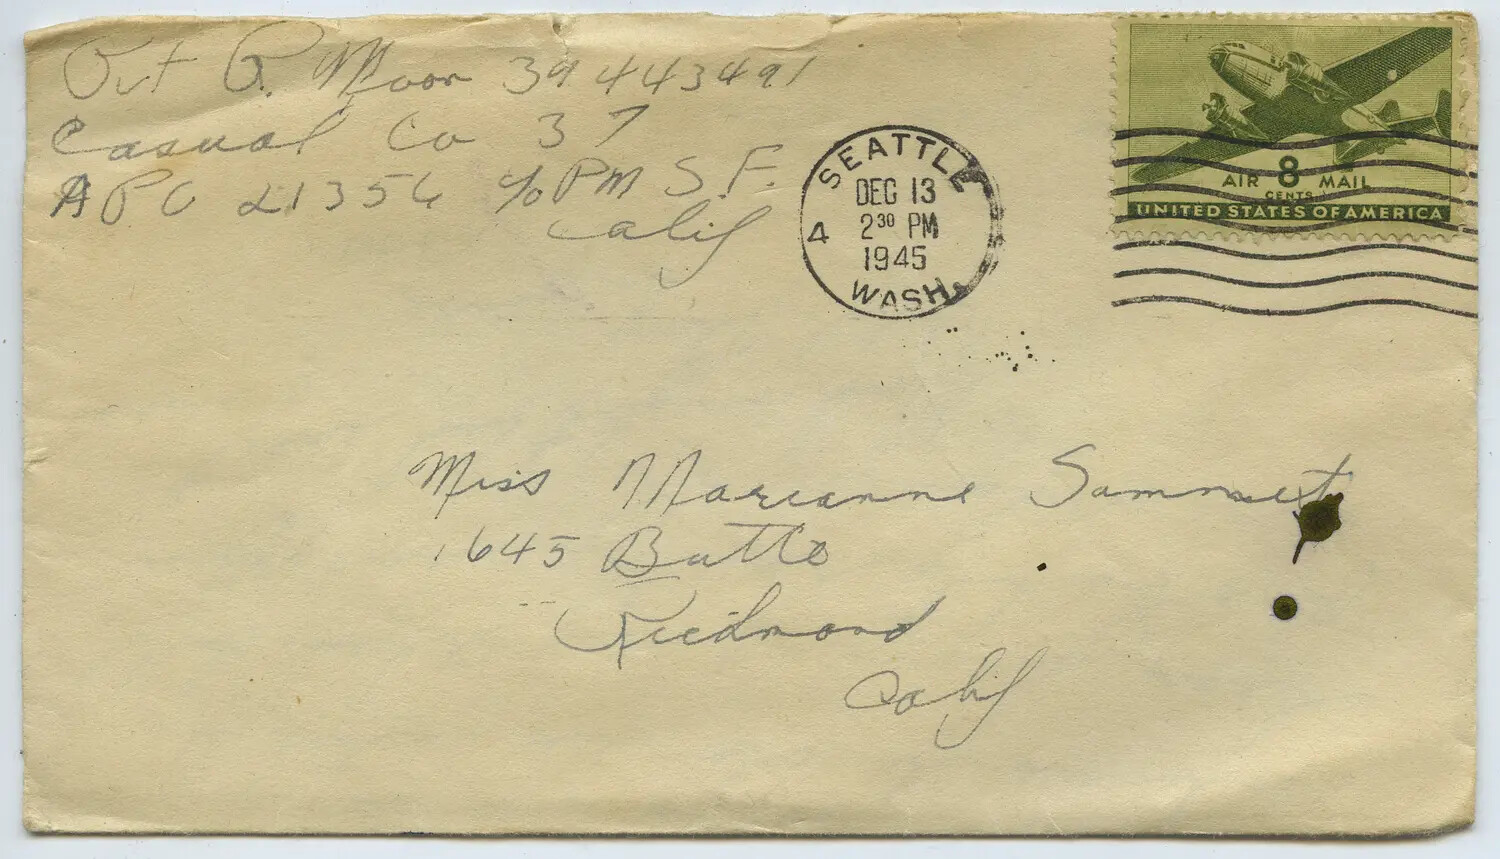 Pvt R. Moor 39 443491
Casual Co 37
APO 21356 c/o PM S.F.
Calif
SEATTLE
DEC 13
4 2 30 PM
1945
WASH.
AIR 8 MAIL
CENTS
UNITED STATES OF AMERICA
Miss Marianne
1645 Butte
Redmond
Calif